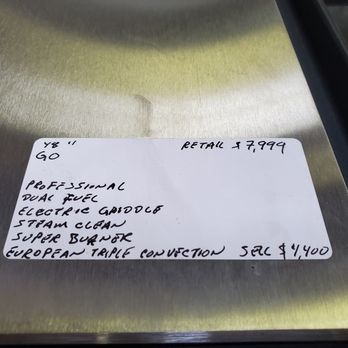 48 " RETAIL $7,999
GO
PROFESSIONAL
DUAL FUEL
ELECTRIC GRIDDLE
STEAM CLEAN
SUPER BURNER
EUROPEAN TRIPLE CONVECTION SELL $4,400